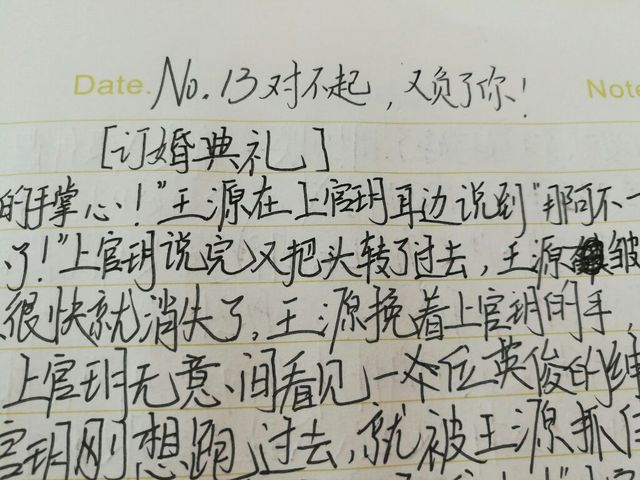 Date. No.13对不起，又负了你！
Note
[订婚典礼]
的手掌心！"王源在上官玥耳边说到"那可不一
了！"上官玥说完又把头转了过去，王源皱
很快就消失了，王源挽着上官玥的手，
上官玥无意间看见一个位英俊的绅
官玥刚想跑过去，就被王源抓住